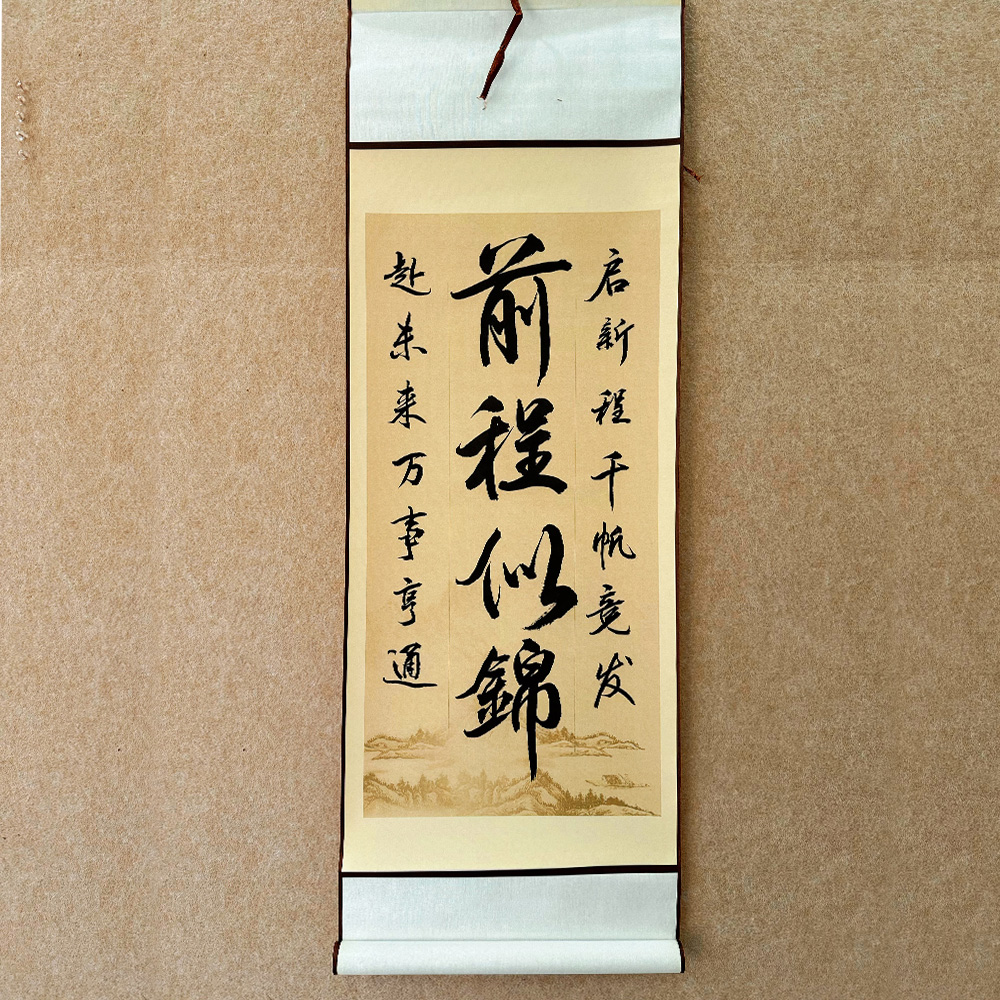 启新程千帆竞发
前程似錦
赴未来万事亨通